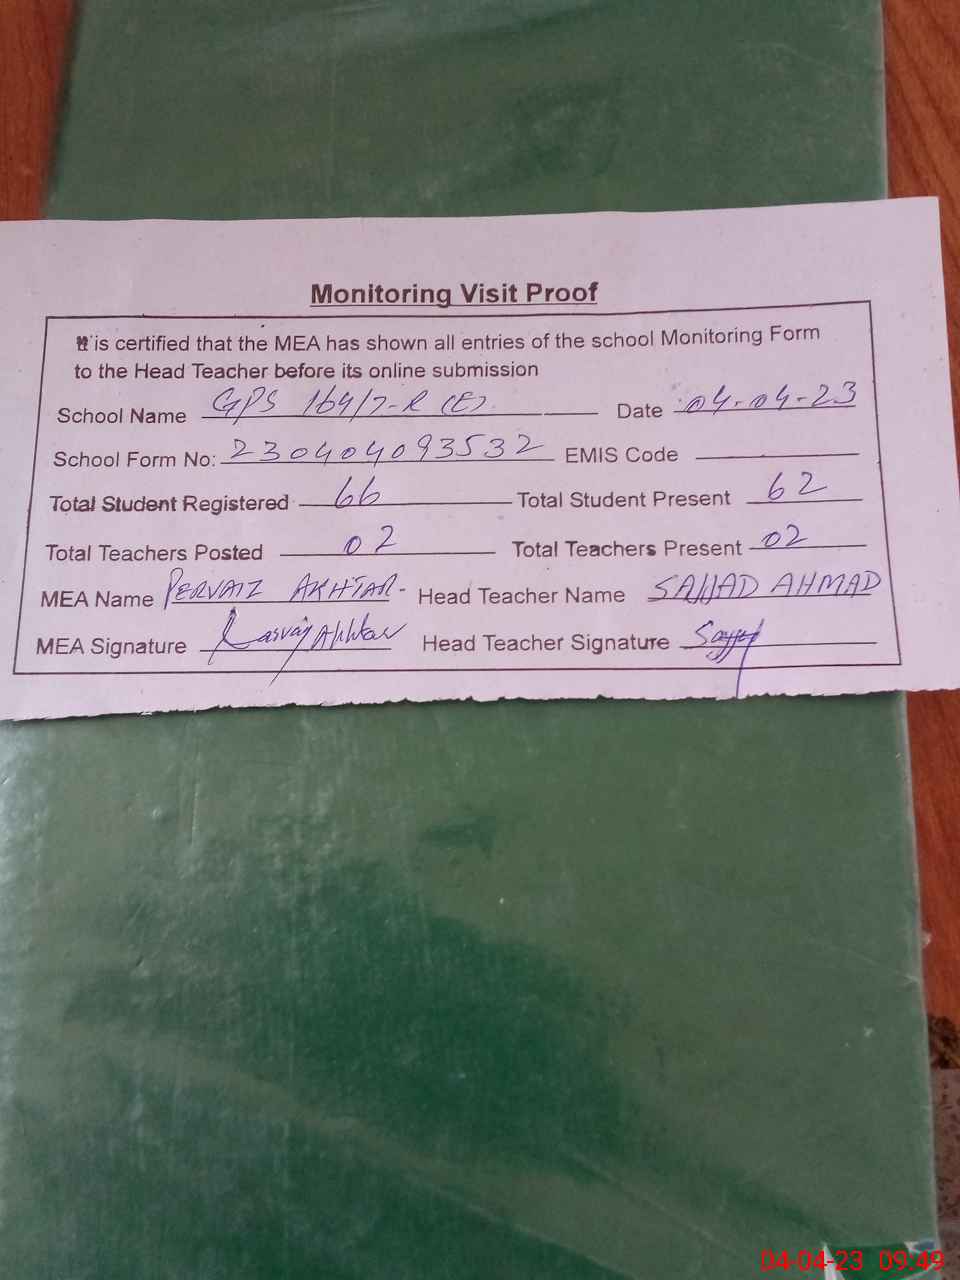 Monitoring Visit Proof
It is certified that the MEA has shown all entries of the school Monitoring Form
to the Head Teacher before its online submission
School Name GPS 164/7-R (E) Date 04-04-23
School Form No: 230404093532 EMIS Code
Total Student Registered 66 Total Student Present 62
Total Teachers Posted 02 Total Teachers Present 02
MEA Name PERVAIZ AKHTAR- Head Teacher Name SAJJAD AHMAD
MEA Signature Akhtar Head Teacher Signature
04-04-23 09:49